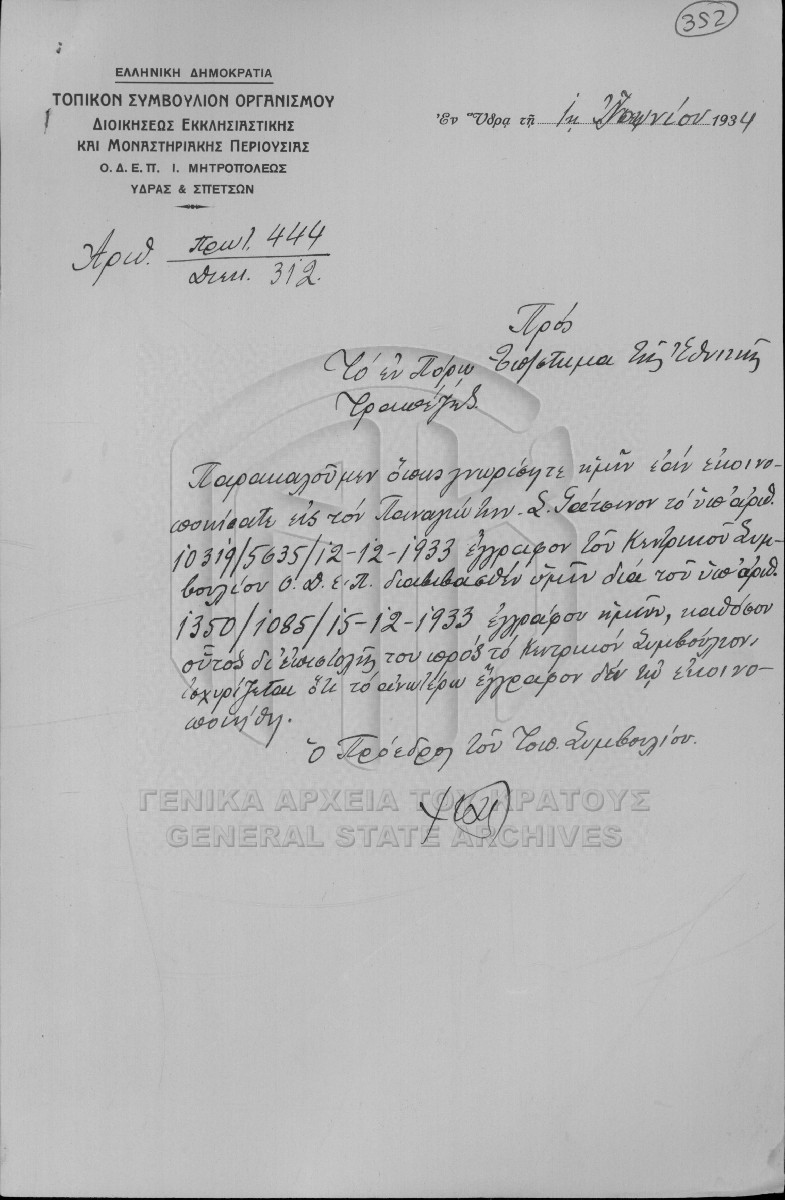 352
ΕΛΛΗΝΙΚΗ ΔΗΜΟΚΡΑΤΙΑ
ΤΟΠΙΚΟΝ ΣΥΜΒΟΥΛΙΟΝ ΟΡΓΑΝΙΣΜΟΥ
ΔΙΟΙΚΗΣΕΩΣ ΕΚΚΛΗΣΙΑΣΤΙΚΗΣ
ΚΑΙ ΜΟΝΑΣΤΗΡΙΑΚΗΣ ΠΕΡΙΟΥΣΙΑΣ
Ο. Δ. Ε. Π. Ι. ΜΗΤΡΟΠΟΛΕΩΣ
ΥΔΡΑΣ & ΣΠΕΤΣΩΝ
Ἐν Ὕδρᾳ τῇ 1ῃ Ἰουνίου 1934
Ἀριθ. πρωτ. 444
διεκ. 312.
Πρὸς
Τὸ ἐν Πόρῳ Ὑποκ/στημα τῆς Ἐθνικῆς
Τραπέζης.
Παρακαλοῦμεν ὅπως γνωρίσητε ἡμῖν ἐάν ἐκοινο-
ποιήσατε εἰς τόν Παναγιώτην Σ. τό ὑπ' ἀριθ.
10319/5635/12-12-1933 ἔγγραφον τοῦ Κεντρικοῦ Συμ-
βουλίου Ο. Δ. Ε. Π. διαβιβασθέν ὑμῖν διά τοῦ ὑπ' ἀριθ.
1350/1085/15-12-1933 ἐγγράφου ἡμῶν, καθόσον
οὗτος δι' ἐπιστολῆς του πρός τό Κεντρικόν Συμβούλιον,
ἰσχυρίζεται ὅτι τό ἀνωτέρω ἔγγραφον δέν τῷ ἐκοινο-
ποιήθη.
Ὁ Πρόεδρος τοῦ Τοπ. Συμβουλίου.
ΓΕΝΙΚΑ ΑΡΧΕΙΑ ΤΟΥ ΚΡΑΤΟΥΣ
GENERAL STATE ARCHIVES